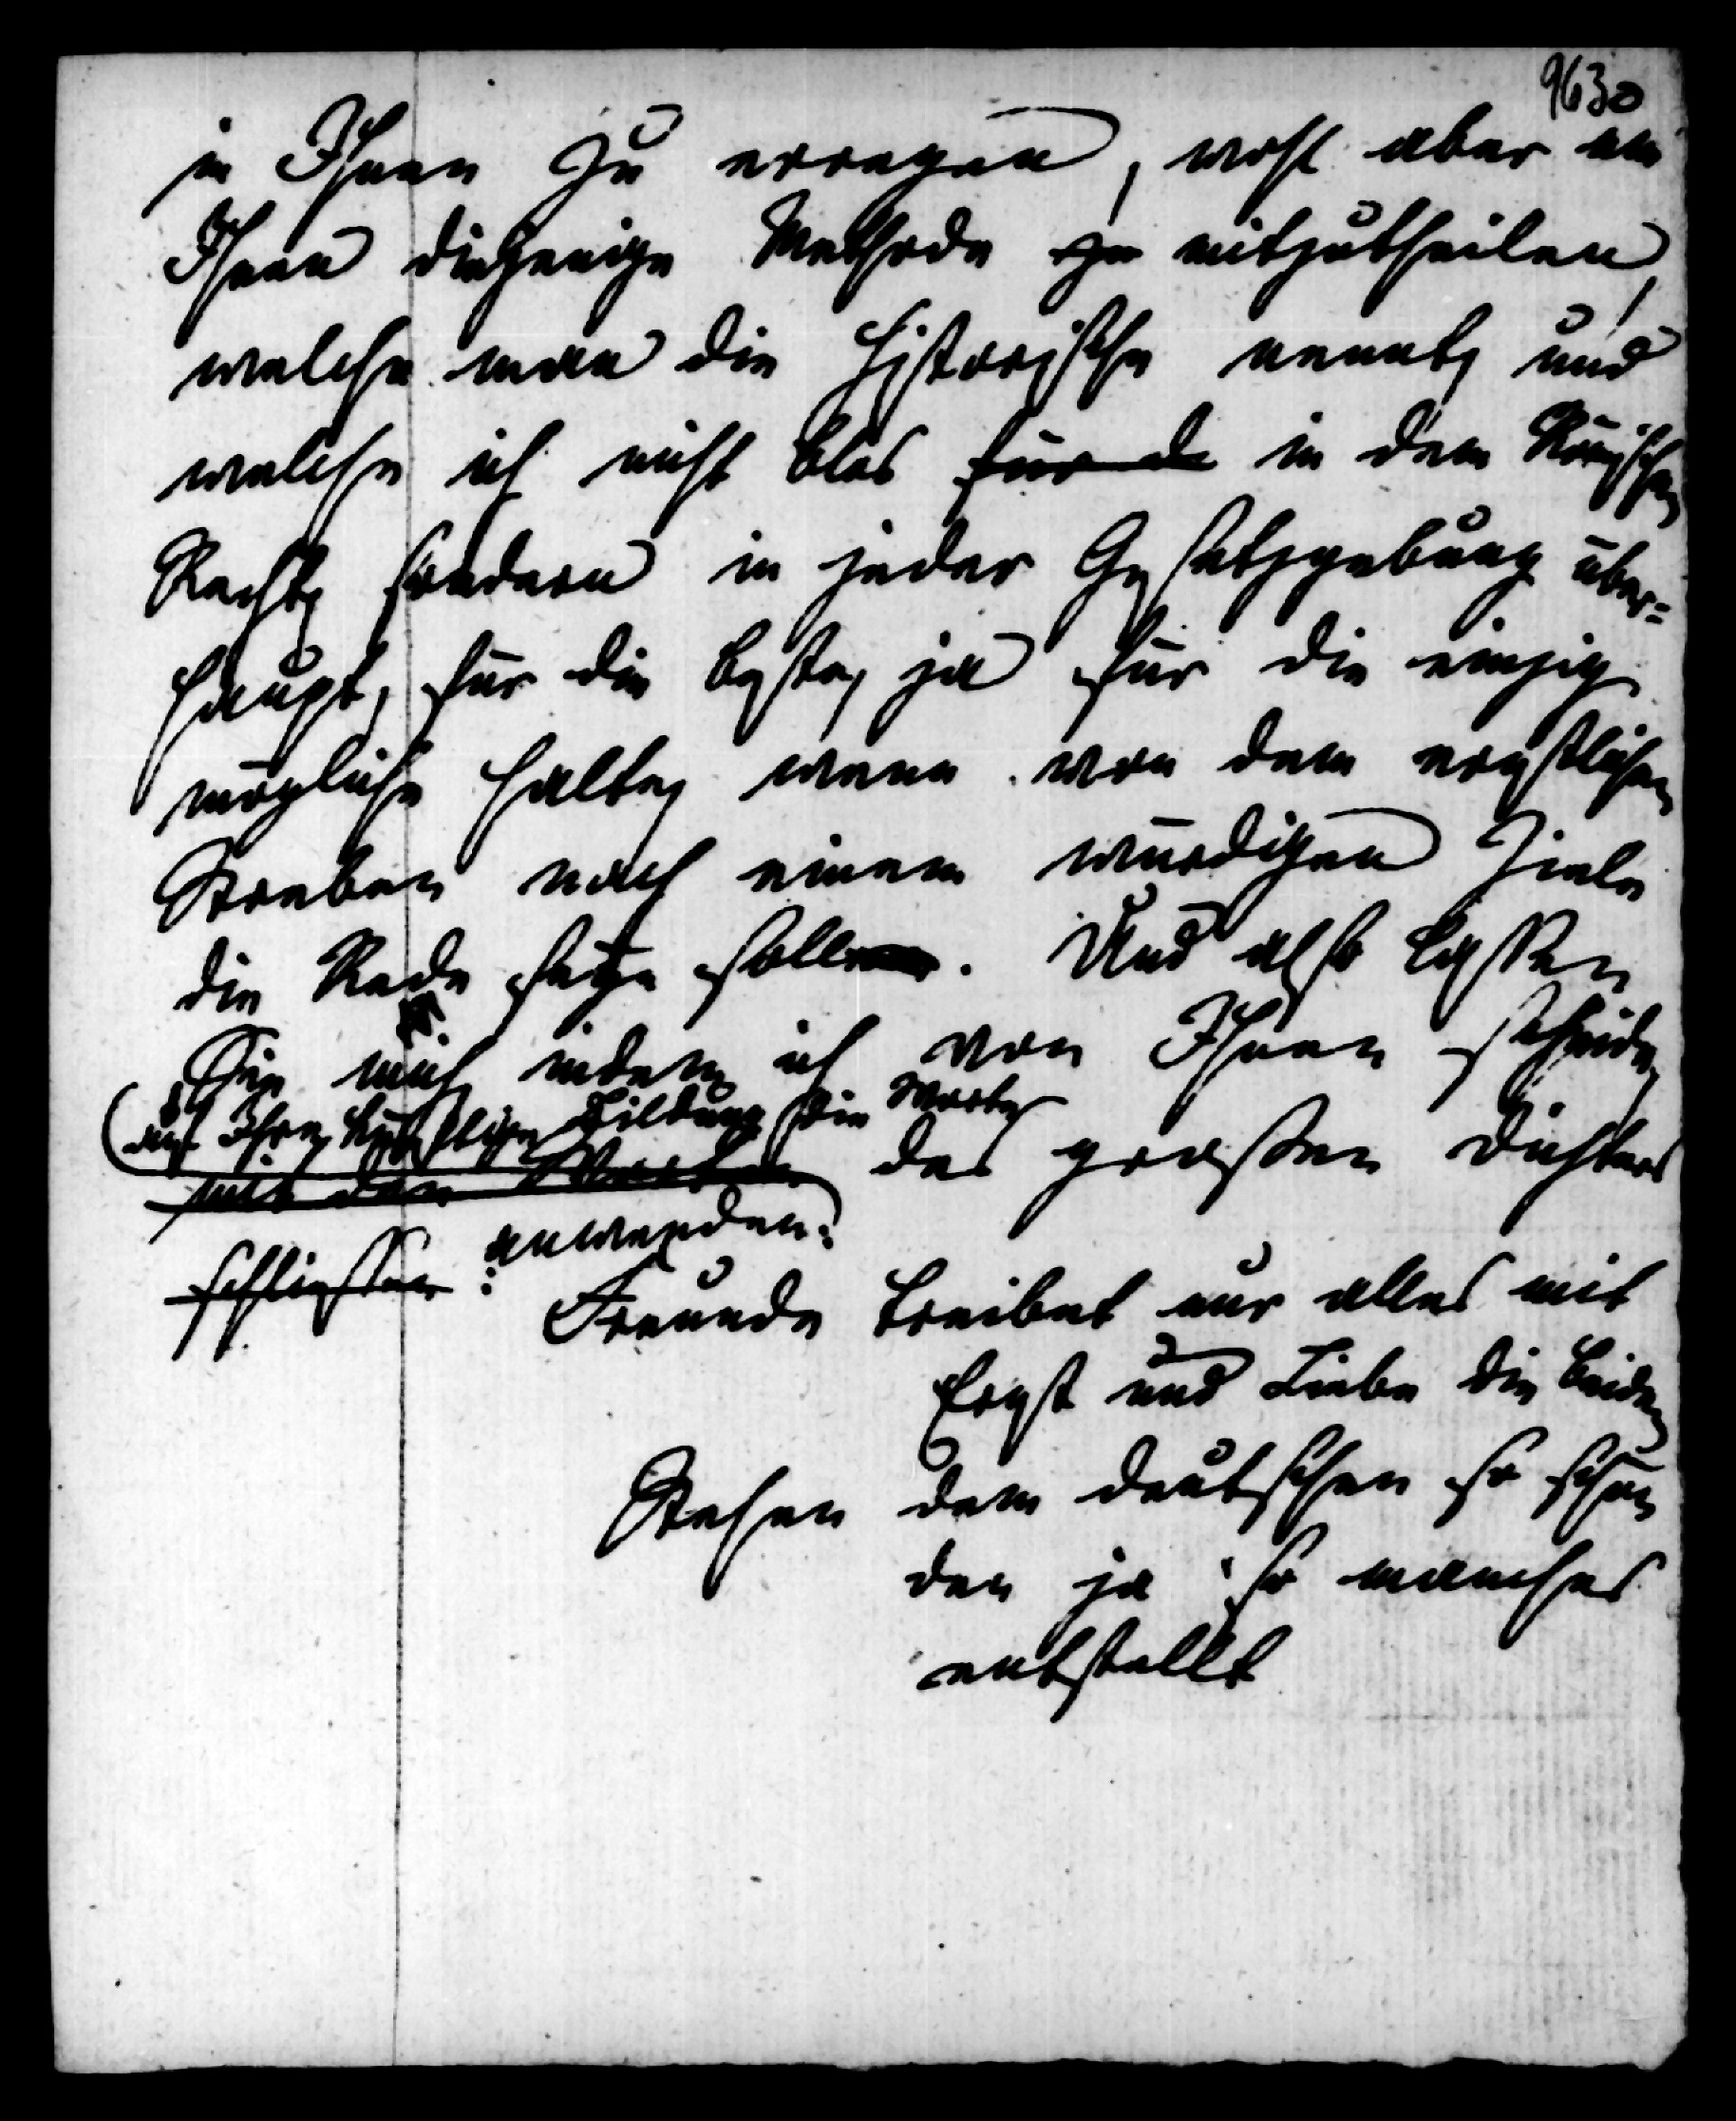 9630
in Ihnen zu erregen, wohl aber um
Ihnen diejenige Methode zu mitzutheilen,
welche man die historische nennt, und
welche ich nicht blos für de in dem Römischen
Recht, sondern in jeder Gesetzgebung über-
haupt, für die beste, ja für die einzig
mögliche halte, wenn von dem ernstlichen
Streben nach einem würdigen Ziele
die Rede seyn soll. Und also lassen
Sie mich, indem ich von Ihnen scheide,
auf Ihre künftige Bildung die Worte
mit den Worten des großen Dichters
anwenden:
schließen:
Freunde treibet nur alles mit
Ernst und Liebe die beiden
Stehen dem deutschen so schön
den ja so manches
entstellt